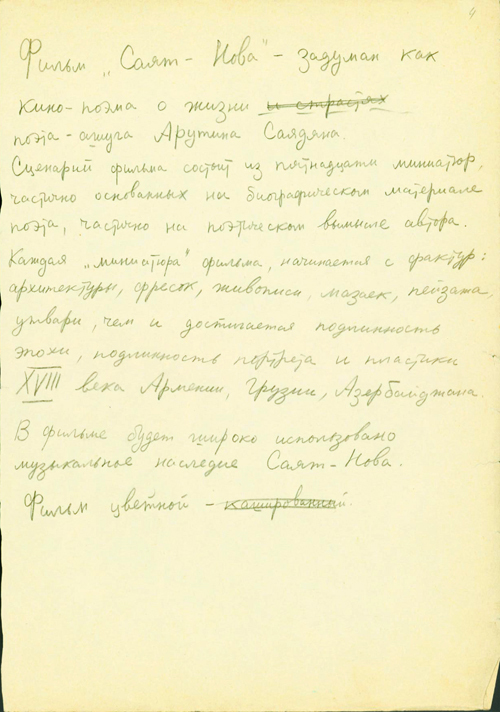 4
Фильм „Саят-Нова" - задуман как
кино-поэма о жизни и страстях
поэта-ашуга Арутина Саядяна.
Сценарий фильма состоит из пятнадцати миниатюр,
частично основанных на биографическом материале
поэта, частично на поэтическом вымысле автора.
Каждая „миниатюра" фильма, начинается с фактур:
архитектуры, фресок, живописи, мазаек, пейзажа,
утвари, чем и достигается подлинность
эпохи, подлинность портрета и пластики
XVIII века Армении, Грузии, Азербайджана.
В фильме будет широко использовано
музыкальное наследие Саят-Нова.
Фильм цветной - кашированный.